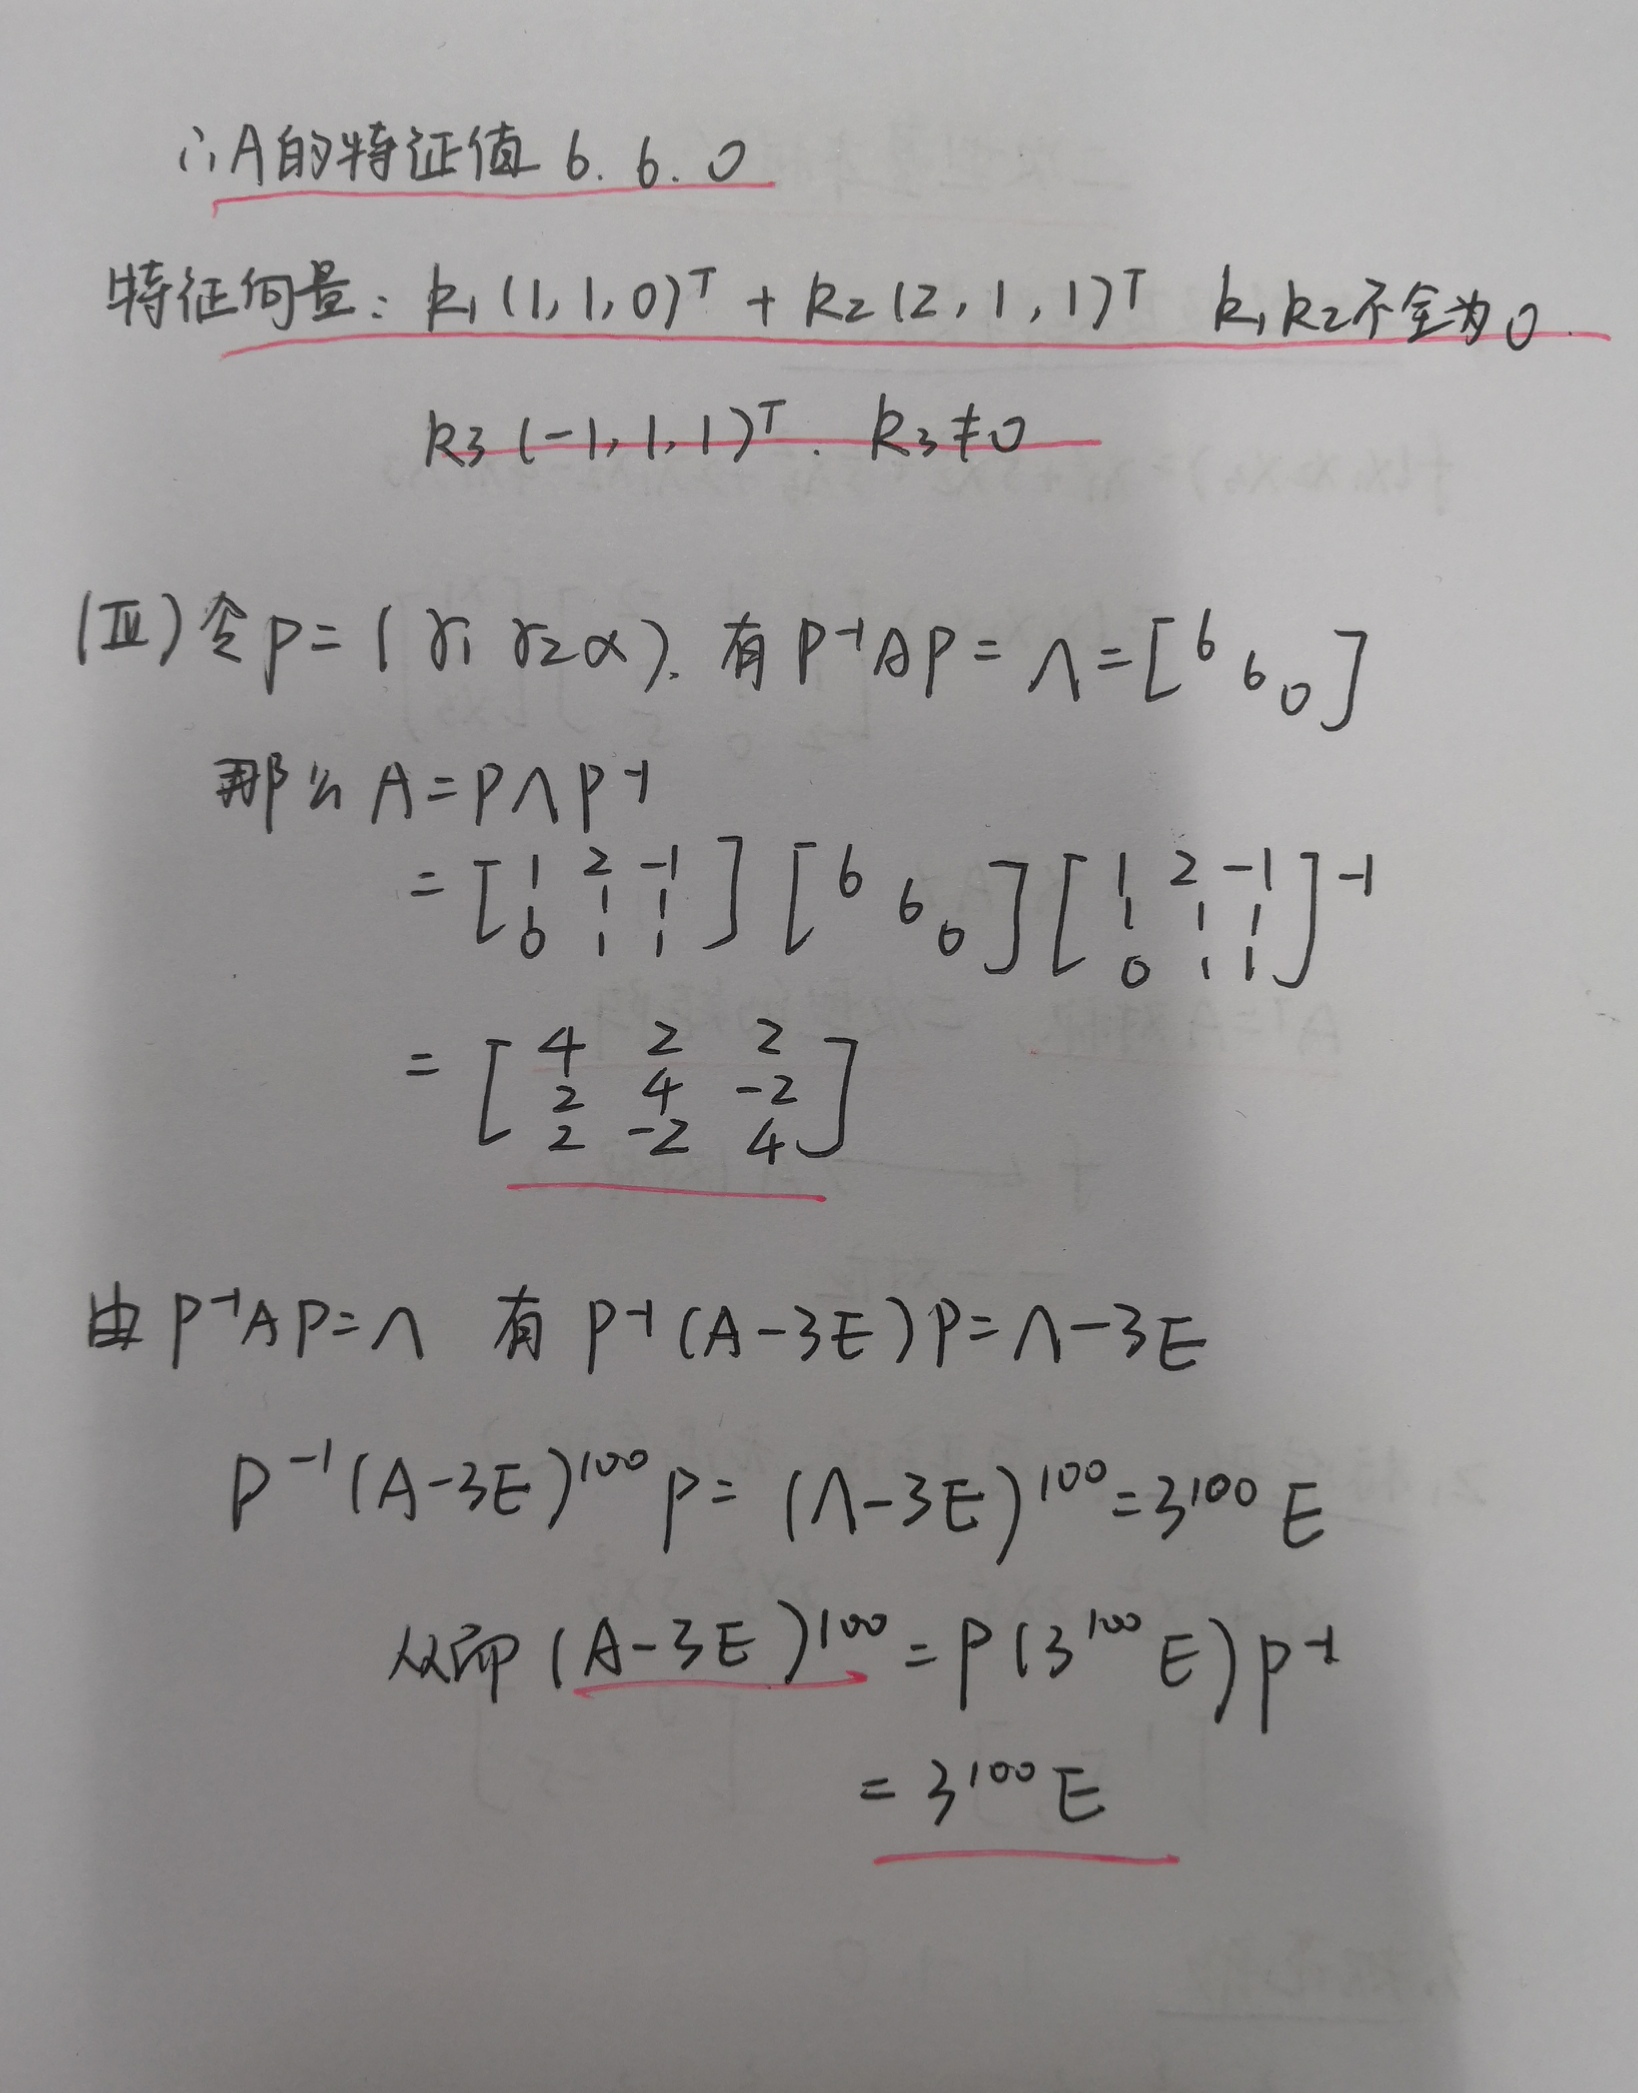 ∴A的特征值 6. 6. 0
特征向量: k₁(1,1,0)ᵀ + k₂(2,1,1)ᵀ k₁k₂不全为0.
k₃(-1,1,1)ᵀ. k₃≠0
(Ⅲ)令P=(γ₁ γ₂ α). 有P⁻¹AP=Λ=[6 6 0]
那么A=PΛP⁻¹
=[1 2 -1
1 1 1
0 1 1][6 6 0][1 2 -1
1 1 1
0 1 1]⁻¹
=[4 2 2
2 4 -2
2 -2 4]
由P⁻¹AP=Λ 有P⁻¹(A-3E)P=Λ-3E
P⁻¹(A-3E)¹⁰⁰P=(Λ-3E)¹⁰⁰=3¹⁰⁰E
从而(A-3E)¹⁰⁰=P(3¹⁰⁰E)P⁻¹
=3¹⁰⁰E